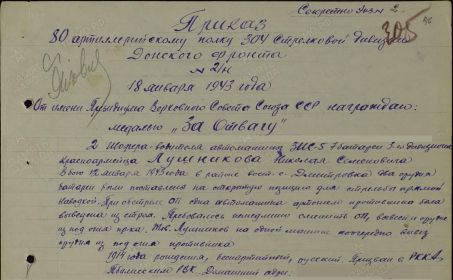 Секретно Экз 2
305
Приказ
80 артиллерийскому полку 304 Стрелковой дивизии
Донского Фронта
№ 2/н
18 января 1943 года
От имени Президиума Верховного Совета Союза ССР награждаю:
медалью „За Отвагу"
2 Шофера-водителя автомашины ЗИС-5 7 батареи 3-го дивизиона
красноармейца Лушникова Николая Семеновича
В бою 12 января 1943 года в районе вост. с. Дмитровка два орудия
батареи были поставлены на открытую позицию для стрельбы прямой
наводкой. При обстреле ОП одна автомашина артогнем противника была
выведена из строя. Требовалось немедленно сменить ОП, вывести орудие
из под огня пр-ка. Тов. Лушников на одной машине поочередно вывез
орудия из под огня противника
1914 года рождения, беспартийный, русский. Призван в РККА
РВК. Домашний адрес.